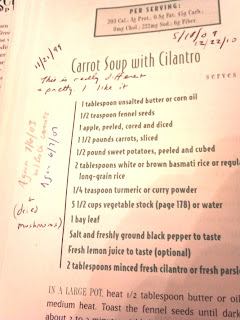 PER SERVING:
203 Cal, 4g Prot, 0.8g Fat, 45g Carb,
0mg Chol, 222mg Sod, 6g Fiber
11/21/99
5/18/09
12/22/10
Carrot Soup with Cilantro
This is really different
& pretty. I like it
serves
1 tablespoon unsalted butter or corn oil
1/2 teaspoon fennel seeds
1 apple, peeled, cored and diced
1 1/2 pounds carrots, sliced
1/2 pound sweet potatoes, peeled and cubed
2 tablespoons white or brown basmati rice or regula
long-grain rice
1/4 teaspoon turmeric or curry powder
5 1/2 cups vegetable stock (page 178) or water
1 bay leaf
Salt and freshly ground black pepper to taste
Fresh lemon juice to taste (optional)
2 tablespoons minced fresh cilantro or fresh parsle
Again
Again 6/7/07
(dried
mushrooms)
IN A LARGE POT, heat 1/2 tablespoon butter or oil
medium heat. Toast the fennel seeds until dark
about 2 to 3